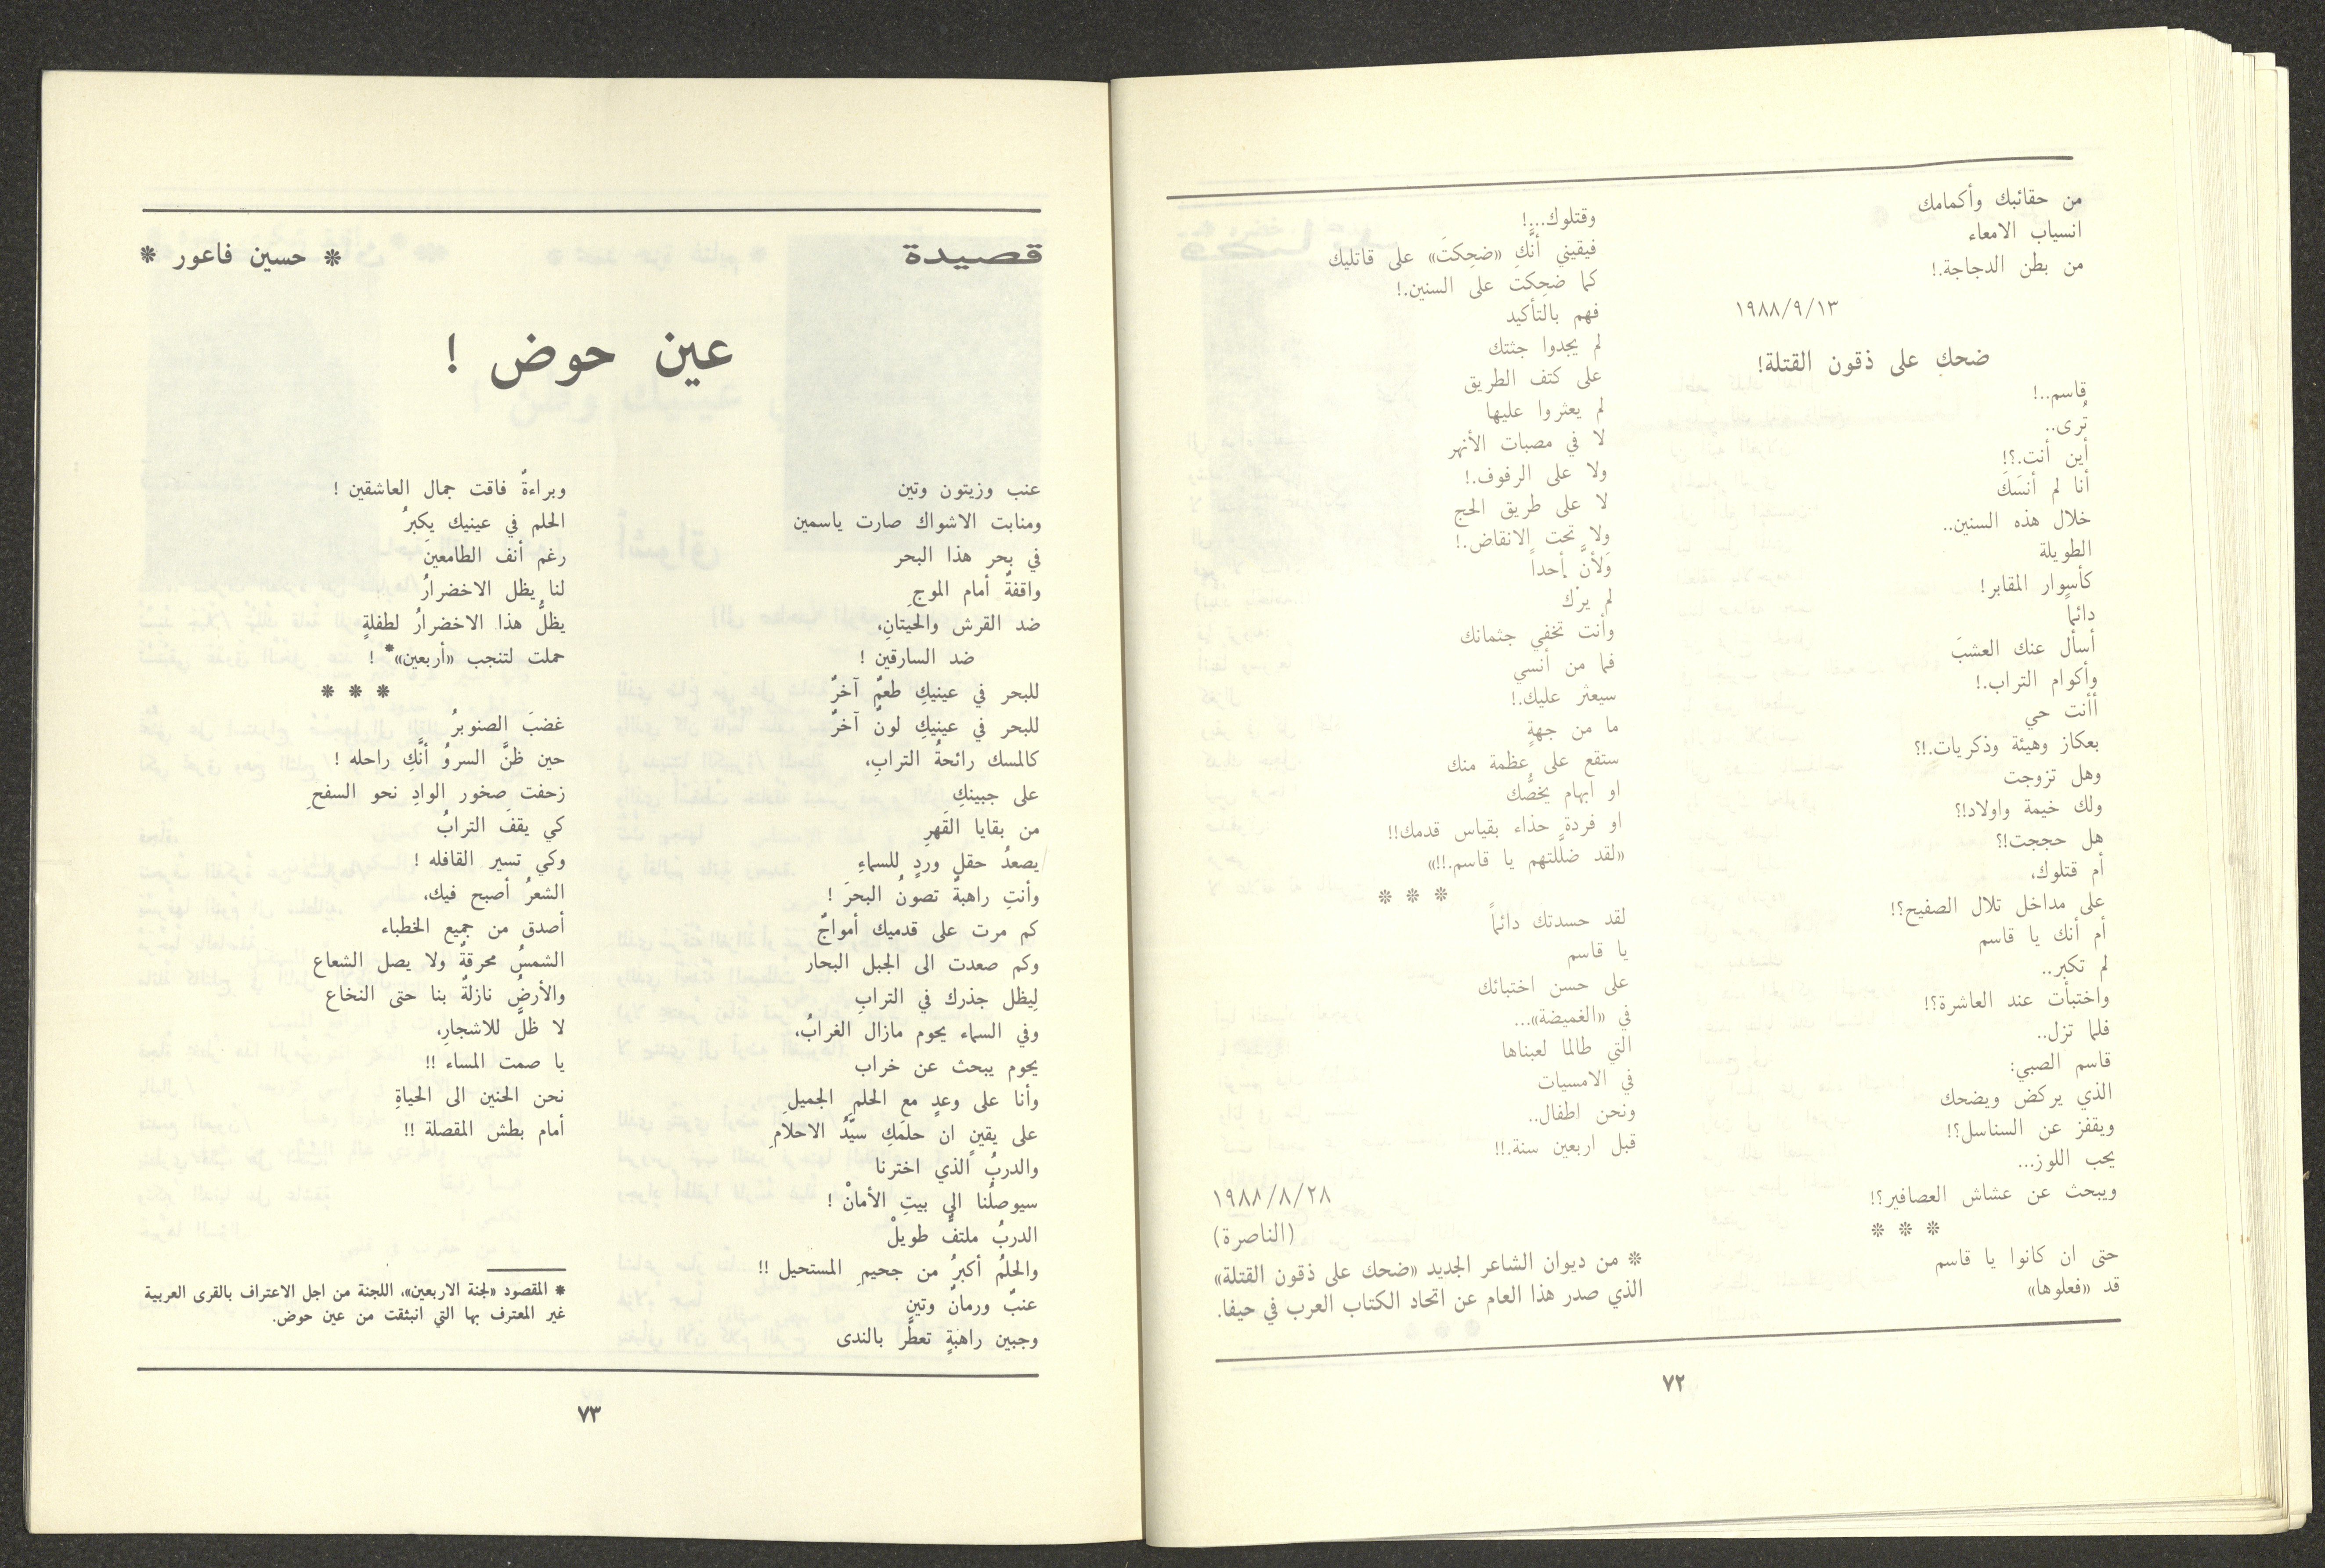 من حقائبك وأكمامك
انسياب الامعاء
من بطن الدجاجة.!
١٩٨٨/٩/١٣
ضحك على ذقون القتلة!
قاسم..!
تُرى..
أين أنت.؟!
أنا لم أنسَكَ
خلال هذه السنين..
الطويلة
كأسوار المقابر!
دائماً
أسأل عنك العشبَ
وأكوام التراب.!
أأنت حي
بعكاز وهيئة وذكريات.!؟
وهل تزوجت
ولك خيمة واولاد!؟
هل حججت!؟
أم قتلوك،
على مداخل تلال الصفيح؟!
أم أنك يا قاسم
لم تكبر..
واختبأت عند العاشرة؟!
فلما تزل..
قاسم الصبي:
الذي يركض ويضحك
ويقفز عن السناسل؟!
يحب اللوز...
ويبحث عن عشاش العصافير؟!
* * *
حتى ان كانوا يا قاسم
قد «فعلوها»
وقتلوك...!
فيقيني أنَّكِ «ضحِكتَ» على قاتليك
كما ضحِكتَ على السنين.!
فهم بالتأكيد
لم يجدوا جثتك
على كتف الطريق
لم يعثروا عليها
لا في مصبات الأنهر
ولا على الرفوف.!
لا على طريق الحج
ولا تحت الانقاض.!
وَلأنَّ أحداً
لم يرْك
وأنت تخفي جثمانك
فما من أنسي
سيعثر عليك.!
ما من جهةٍ
ستقع على عظمة منك
او ابهام يخصُّك
او فردةِ حذاء بقياس قدمك!!
«لقد ضلَّلتهم يا قاسم.!!»
* * *
لقد حسدتك دائماً
يا قاسم
على حسن اختبائك
في «الغميضة»...
التي طالما لعبناها
في الامسيات
ونحن اطفال..
قبل اربعين سنة.!!
١٩٨٨/٨/٢٨
(الناصرة)
* من ديوان الشاعر الجديد «ضحك على ذقون القتلة»
الذي صدر هذا العام عن اتحاد الكتاب العرب في حيفا.
٧٢
قصيدة
* حسين فاعور *
عين حوض !
عنب وزيتون وتين
ومنابت الاشواك صارت ياسمين
في بحر هذا البحر
واقفةٌ أمام الموجِ
ضد القرش والحيتانِ،
ضد السارقين !
للبحر في عينيكِ طعمٌ آخرٌ
للبحر في عينيكِ لونٌ آخرٌ
كالمسك رائحةُ الترابِ،
على جبينكِ
من بقايا القَهرِ
يصعدُ حقل وردٍ للسماءِ
وأنتِ راهبةٌ تصونُ البحرَ !
كم مرت على قدميك أمواجٌ
وكم صعدت الى الجبل البحار
لِيظل جذرك في الترابِ
وفي السماء يحوم مازال الغرابُ،
يحوم يبحث عن خراب
وأنا على وعدٍ مع الحلم الجميلِ
على يقينٍ ان حلمَكِ سيّدُ الاحلامِ
والدربُ الذي اخترنا
سيوصلُنا الى بيتِ الأمانْ !
الدربُ ملتفٌّ طويلْ
والحلمُ أكبرُ من جحيمِ المستحيل !!
عنبٌ ورمانٌ وتينٍ
وجبين راهبةٍ تعطَّر بالندى
وبراءةٌ فاقت جمال العاشقين !
الحلم في عينيك يَكبرُ
رغم أنف الطامعينَ
لنا يظل الاخضرارُ
يظلُّ هذا الاخضرارُ لطفلةٍ
حملت لتنجب «أربعين»* !
* * *
غضبَ الصنوبرُ
حين ظنَّ السروُ أنَّكِ راحله !
زحفت صخور الوادِ نحو السفحِ
كي يقفَ الترابُ
وكي تسير القافله !
الشعرُ أصبح فيك،
أصدق من جميع الخطباء
الشمسُ محرقةٌ ولا يصل الشعاع
والأرضُ نازلةٌ بنا حتى النخاع
لا ظلَّ للاشجارِ،
يا صمت المساء !!
نحن الحنين الى الحياةِ
أمام بطش المقصلة !!
* المقصود «لجنة الاربعين»، اللجنة من اجل الاعتراف بالقرى العربية
غير المعترف بها التي انبثقت من عين حوض.
٧٣